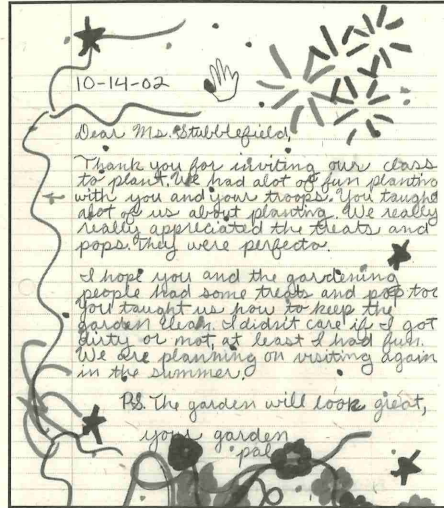 10-14-02
Dear Ms. Stubblefield,
Thank you for inviting our class
to plant. We had alot of fun planting
with you and your troops. You taught
alot of us about planting. We really
really appreciated the treats and
pops. They were perfecto.
I hope you and the gardening
people had some treats and pop too
you taught us how to keep the
garden clean. I didn't care if I got
dirty or not, at least I had fun.
We are planning on visiting again
in the summer.
P.S. The garden will look great,
your garden
pal